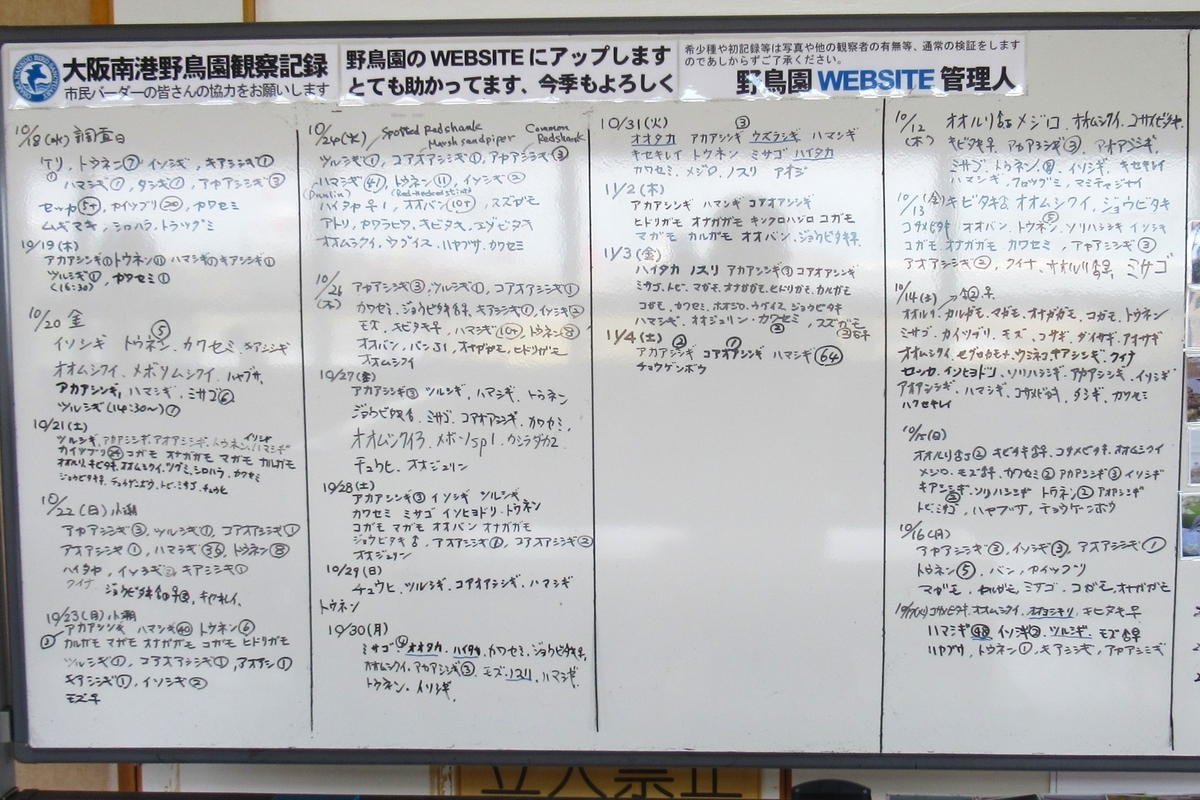 大阪南港野鳥園観察記録
市民バーダーの皆さんの協力をお願いします
野鳥園のWEBSITEにアップします
とても助かってます、今季もよろしく
希少種や初記録等は写真や他の観察者の有無等、通常の検証をしますのであしからずご了承ください。
野鳥園 WEBSITE 管理人
10/18(水) 調査日
ケリ、トウネン⑦、イソシギ、キアシシギ①
ハマシギ①、タシギ①、アカアシシギ③
セッカ 5+、カイツブリ⑳、カワセミ
ムギマキ、シロハラ、トラツグミ
10/19(木)
アカアシシギ① トウネン⑪ ハマシギ① キアシシギ①
ツルシギ① カワセミ①
(16:30)
10/20 金
イソシギ トウネン⑤ カワセミ、キアシシギ
オオムシクイ、メボソムシクイ、ハヤブサ、
アカアシシギ、ハマシギ、ミサゴ⑥
ツルシギ(14:30〜)①
10/21(土)
ツルシギ、アカアシシギ、アオアシシギ、トウネン、ハマシギ イソシギ
カイツブリ㉔ コガモ オナガガモ マガモ カルガモ
オオルリ、キビタキ、オオムシクイ、ツグミ、シロハラ、カワセミ
ジョウビタキ、チョウゲンボウ、トビ、ミサゴ、チュウヒ
10/22(日) 小潮
アカアシシギ③、ツルシギ①、コアオアシシギ①
アオアシシギ①、ハマシギ㊱、トウネン⑧
ハイタカ、イソシギ②、キアシシギ①
クイナ ジョウビタキ、キセキレイ、
10/23(月) 小潮
アカアシシギ③ ハマシギ㊵ トウネン⑥
カルガモ マガモ オナガガモ コガモ ヒドリガモ
ツルシギ①、コアオアシシギ①、アオアシ①
キアシシギ①、イソシギ②
モズ♀
10/24(火) Spotted Redshank Marsh sandpiper Common Redshank
ツルシギ①、コアオアシシギ①、アカアシシギ③
ハマシギ㊶、トウネン⑪、イソシギ②
(Dunlin) (Red-necked stint)
ハイタカ♀1、オオバン(10+)、スズガモ
アトリ、カワラヒワ、キビタキ、エゾビタキ
オオムシクイ、ウグイス、ハヤブサ、カワセミ
10/26(木)
アカアシシギ③、ツルシギ①、コアオアシシギ①
カワセミ、ジョウビタキ、キアシシギ①、イソシギ②
モズ、ハマシギ(10+)、トウネン⑧
オオバン、バン J1、オナガガモ、ヒドリガモ
オオムシクイ
10/27(金)
アカアシシギ③ ツルシギ、ハマシギ、トウネン
ジョウビタキ、ミサゴ、コアオアシシギ、カワセミ、
オオムシクイ3、メボソsp1、カシラダカ2
チュウヒ、オオジュリン
10/28(土)
アカアシシギ③ イソシギ ツルシギ
カワセミ ミサゴ イソヒヨドリ・トウネン
コガモ マガモ オオバン オナガガモ
ジョウビタキ♂、アオアシシギ①、コアオアシシギ②
オオジュリン
10/29(日)
チュウヒ、ツルシギ、コアオアシシギ、ハマシギ
トウネン
10/30(月)
ミサゴ④ オオタカ、ハイタカ、カワセミ、ジョウビタキ♀、
オオムシクイ、アカアシシギ③、モズ、ノスリ、ハマシギ、
トウネン、イソシギ、
10/31(火) ③
オオタカ アカアシシギ ウズラシギ ハマシギ
キセキレイ トウネン ミサゴ ハイタカ
カワセミ、メジロ、ノスリ アオジ
11/2(木)
アカアシシギ ハマシギ コアオアシシギ
ヒドリガモ オナガガモ キンクロハジロ コガモ
マガモ カルガモ オオバン、ジョウビタキ♀
11/3(金)
ハイタカ ノスリ アカアシシギ③ コアオアシシギ
ミサゴ、トビ、マガモ、オナガガモ、ヒドリガモ、カルガモ
コガモ、カワセミ、ホオジロ、ウグイス、ジョウビタキ
ハマシギ、オオジュリン・カワセミ②、スズガモ
11/4(土) ② ①
アカアシシギ コアオアシシギ ハマシギ(64)
チョウゲンボウ
10/12(木) オオルリ メジロ、オオムシクイ、コサメビタキ、
キビタキ♀、アカアシシギ③、アオアシシギ、
ミサゴ、トウネン⑧、イソシギ、キセキレイ
ハマシギ、クロツグミ、マミチャジナイ
10/13(金) キビタキ♂ オオムシクイ、ジョウビタキ
コサメビタキ オオバン、トウネン⑤ ソリハシシギ イソシギ
コガモ オナガガモ カワセミ、アカアシシギ③
アオアシシギ②、クイナ、オオルリ、ミサゴ
10/14(土)
オオルリ、カルガモ、マガモ、オナガガモ、コガモ、トウネン
ミサゴ、カイツブリ、モズ、コサギ、ダイサギ、アオサギ
オオムシクイ、セグロカモメ、ウミネコ、キアシシギ、クイナ
セッカ、イソヒヨドリ、ソリハシシギ、アカアシシギ、イソシギ
アオアシシギ、ハマシギ、コサメビタキ、タシギ、カワセミ
ハクセキレイ
10/15(日)
オオルリ② キビタキ、コサメビタキ、オオムシクイ
メジロ、モズ、カワセミ② アカアシシギ③ イソシギ
キアシシギ② ソリハシシギ トウネン② アオアシシギ
トビ、ミサゴ、ハヤブサ、チョウゲンボウ
10/16(月)
アカアシシギ③、イソシギ③、アオアシシギ①
トウネン⑤、バン、カイツブリ
マガモ、カルガモ、ミサゴ、コガモ、オナガガモ
10/17(火) コサメビタキ、オオムシクイ、オオヨシキリ、キビタキ♀
ハマシギ㊽ イソシギ② ツルシギ、モズ
ハヤブサ、トウネン①、キアシシギ、アカアシシギ
立入禁止